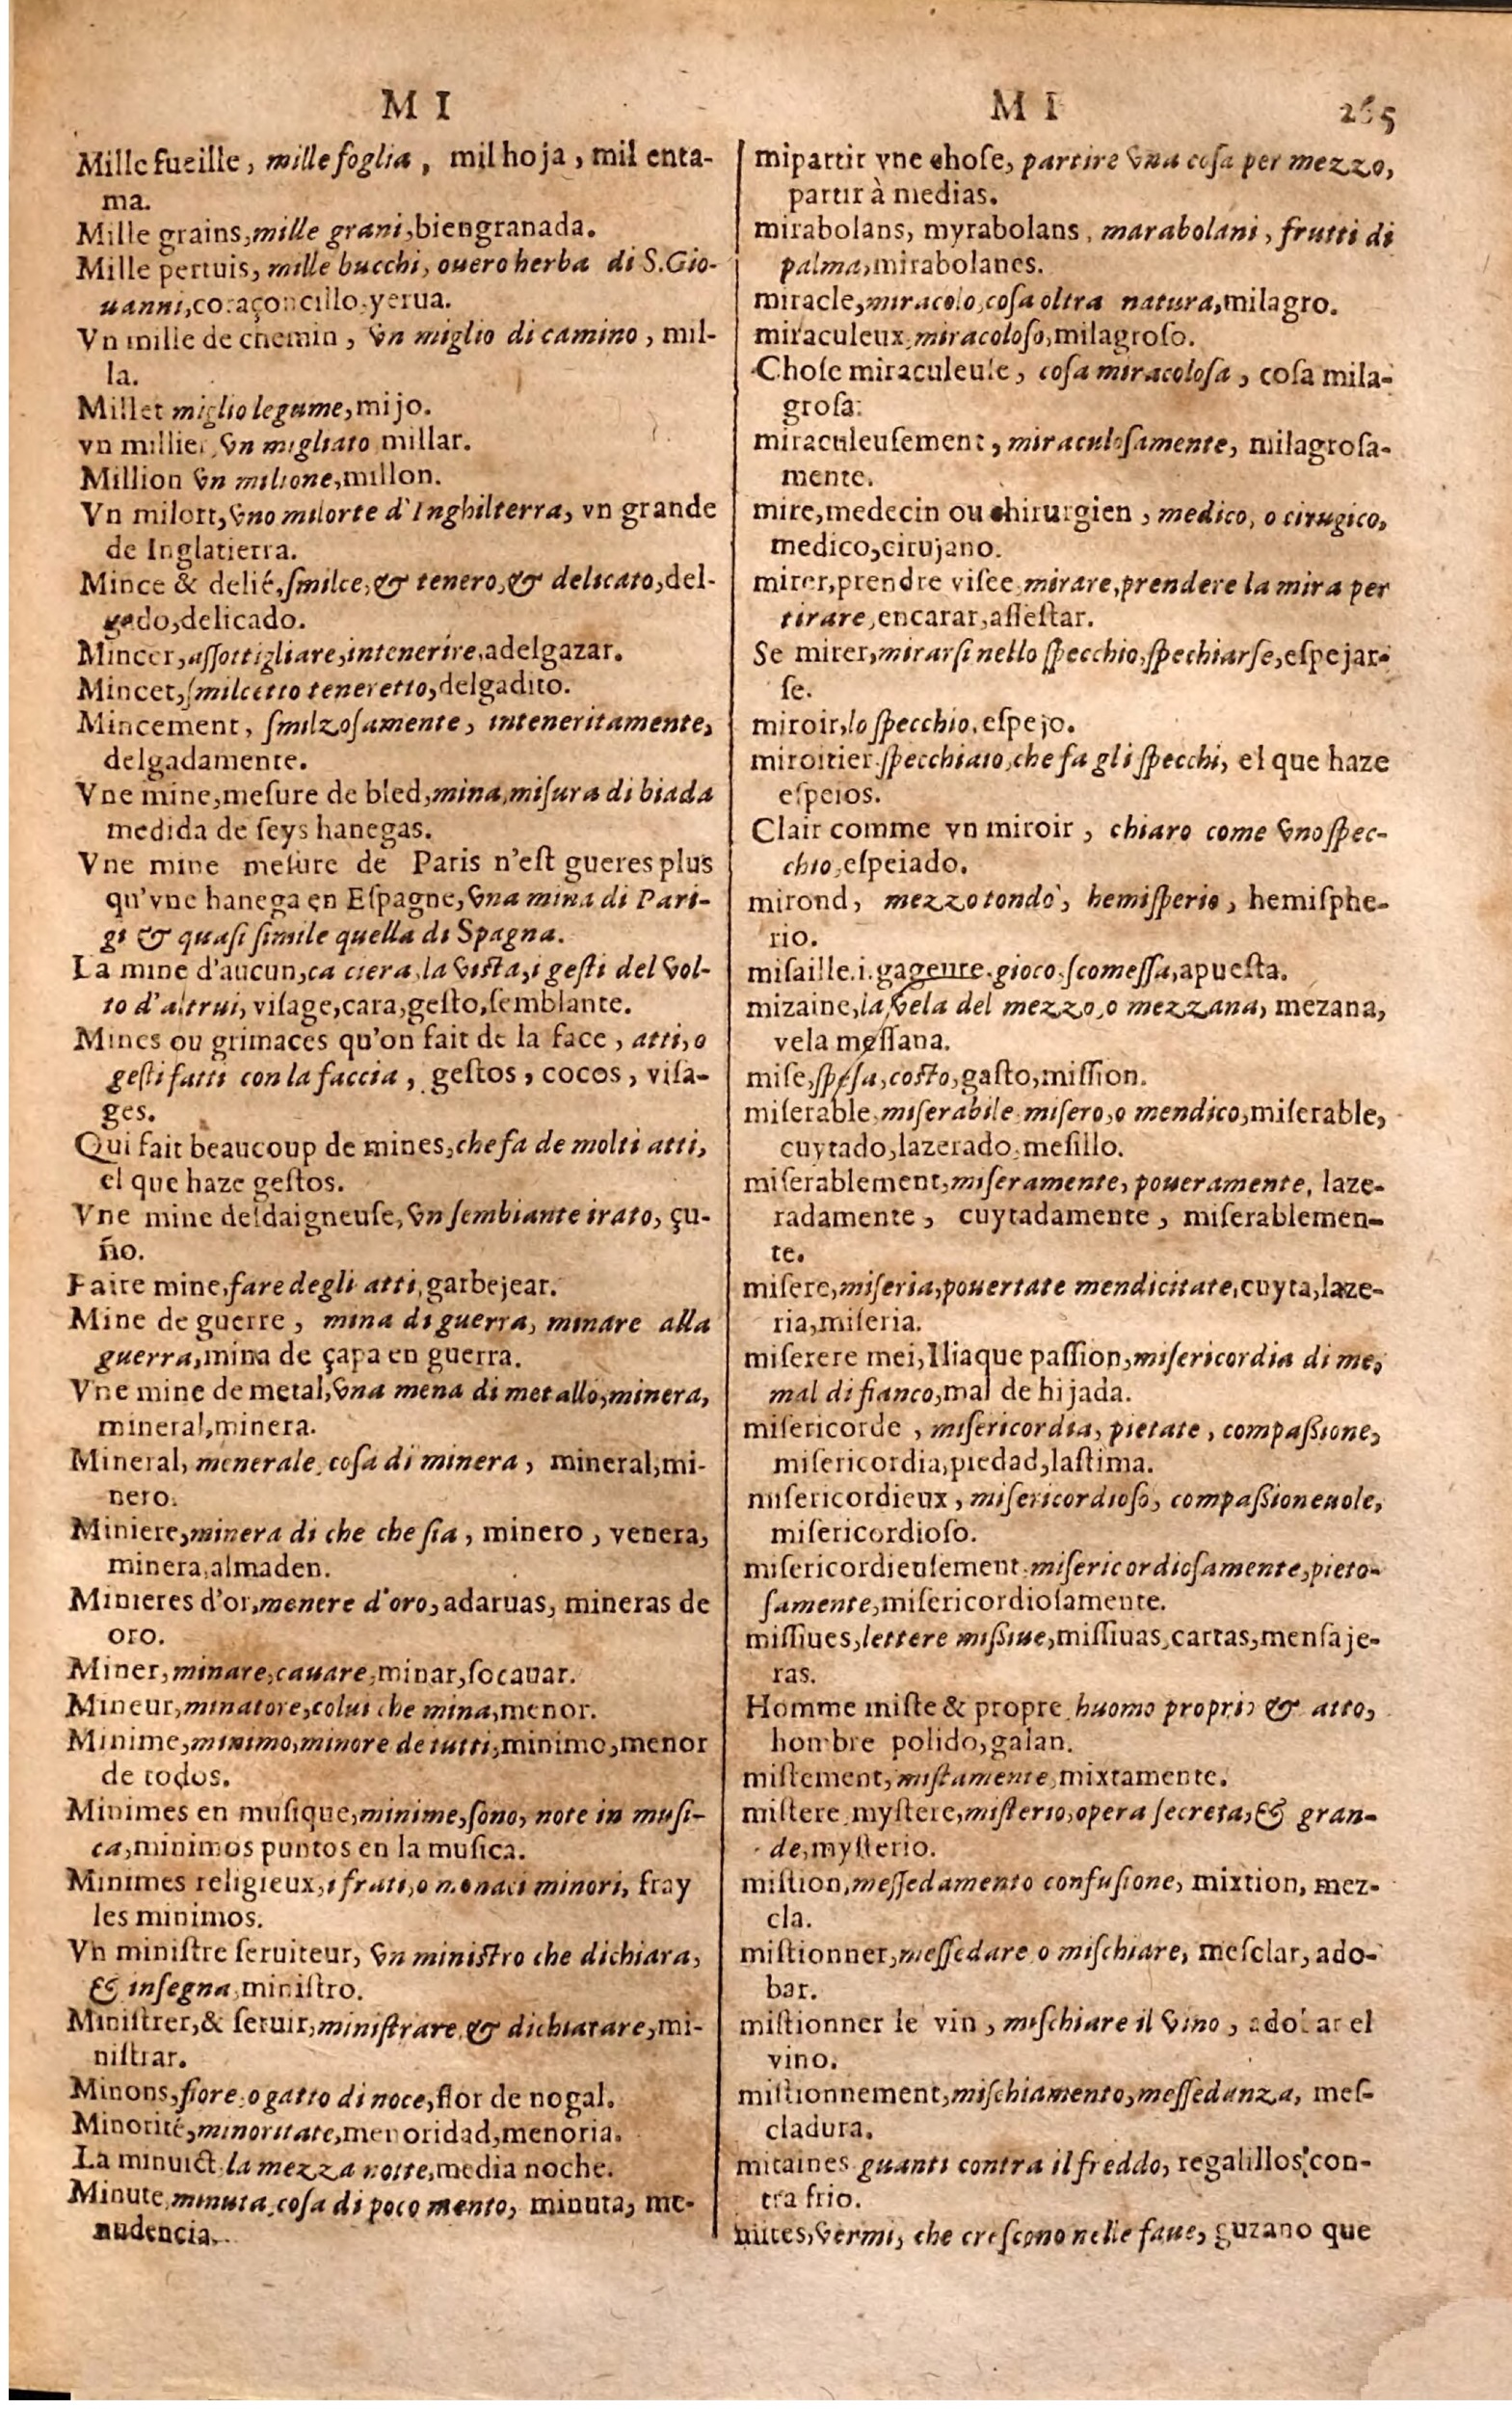 M I
Mille fueille, mille foglia, mil hoja, mil enta-
ma.
Mille grains, mille grani, biengranada.
Mille pertuis, mille bucchi, ouero herba di S. Gio-
uanni, coraçoncillo, yerua.
Vn mille de chemin, vn miglio di camino, mil-
la.
Millet miglio legume, mijo.
vn millier, vn migliato millar.
Million vn milione, millon.
Vn milort, vno milorte d'Inghilterra, vn grande
de Inglatierra.
Mince & delié, ſmilce, & tenero, & delicato, del-
gado, delicado.
Mincer, aſſottigliare, intenerire, adelgazar.
Mincet, ſmilcetto teneretto, delgadito.
Mincement, ſmilzoſamente, inteneritamente,
delgadamente.
Vne mine, meſure de bled, mina, miſura di biada
medida de ſeys hanegas.
Vne mine meſure de Paris n'eſt gueres plus
qu'vne hanega en Eſpagne, vna mina di Pari-
gi & quaſi ſimile quella di Spagna.
La mine d'aucun, ca ciera, la viſta, i geſti del vol-
to d'altrui, viſage, cara, geſto, ſemblante.
Mines ou grimaces qu'on fait de la face, atti, o
geſti fatti con la faccia, geſtos, cocos, viſa-
ges.
Qui fait beaucoup de mines, che fa de molti atti,
el que haze geſtos.
Vne mine deſdaigneuſe, vn ſembiante irato, çu-
ño.
Faire mine, fare degli atti, garbejear.
Mine de guerre, mina di guerra, minare alla
guerra, mina de çapa en guerra.
Vne mine de metal, vna mena di metallo, minera,
mineral, minera.
Mineral, menerale, coſa di minera, mineral, mi-
nero.
Miniere, minera di che che ſia, minero, venera,
minera, almaden.
Minieres d'or, menere d'oro, adaruas, mineras de
oro.
Miner, minare, cauare, minar, ſocauar.
Mineur, minatore, colui che mina, menor.
Minime, minimo, minore de tutti, minimo, menor
de todos.
Minimes en muſique, minime, ſono, note in muſi-
ca, minimos puntos en la muſica.
Minimes religieux, i frati, o monaci minori, fray
les minimos.
Vn miniſtre ſeruiteur, vn miniſtro che dichiara,
& inſegna, miniſtro.
Miniſtrer, & ſeruir, miniſtrare, & dichiarare, mi-
niſtrar.
Minons, fiore, o gatto di noce, flor de nogal.
Minorité, minoritate, menoridad, menoria.
La minuict, la mezza notte, media noche.
Minute, minuta, coſa di poco mento, minuta, me-
nudencia.
M I 265
mipartir vne choſe, partire vna coſa per mezzo,
partir à medias.
mirabolans, myrabolans, marabolani, frutti di
palma, mirabolanes.
miracle, miracolo, coſa oltra natura, milagro.
miraculeux, miracoloſo, milagroſo.
Choſe miraculeuſe, coſa miracoloſa, coſa mila-
groſa.
miraculeuſement, miraculoſamente, milagroſa-
mente.
mire, medecin ou chirurgien, medico, o cirugico,
medico, cirujano.
mirer, prendre viſee, mirare, prendere la mira per
tirare, encarar, aſſeſtar.
Se mirer, mirarſi nello ſpecchio, ſpechiarſe, eſpejar-
ſe.
miroir, lo ſpecchio, eſpejo.
miroitier, ſpecchiaio, che fa gli ſpecchi, el que haze
eſpeios.
Clair comme vn miroir, chiaro come vno ſpec-
chio, eſpeiado.
mirond, mezzo tondo, hemiſperio, hemiſphe-
rio.
miſaille .i. gageure. gioco, ſcomeſſa, apueſta.
mizaine, la vela del mezzo, o mezzana, mezana,
vela meſſana.
miſe, ſpeſa, coſto, gaſto, miſſion.
miſerable, miſerabile, miſero, o mendico, miſerable,
cuytado, lazerado, meſillo.
miſerablement, miſeramente, poueramente, laze-
radamente, cuytadamente, miſerablemen-
te.
miſere, miſeria, pouertate mendicitate, cuyta, laze-
ria, miſeria.
miſerere mei, Iliaque paſſion, miſericordia di me,
mal di fianco, mal de hijada.
miſericorde, miſericordia, pietate, compaßione,
miſericordia, piedad, laſtima.
miſericordieux, miſericordioſo, compaßioneuole,
miſericordioſo.
miſericordieuſement, miſericordioſamente, pieto-
ſamente, miſericordioſamente.
miſſiues, lettere mißiue, miſſiuas, cartas, menſaje-
ras.
Homme miſte & propre, huomo proprio & atto,
hombre polido, galan.
miſtement, miſtamente, mixtamente.
miſtere, myſtere, miſterio, opera ſecreta, & gran-
de, myſterio.
miſtion, meſſedamento confuſione, mixtion, mez-
cla.
miſtionner, meſſedare o miſchiare, meſclar, ado-
bar.
miſtionner le vin, miſchiare il vino, adobar el
vino.
miſtionnement, miſchiamento, meſſedanza, meſ-
cladura.
mitaines guanti contra il freddo, regalillos con-
tra frio.
mites, vermi, che creſcono nelle faue, guzano que